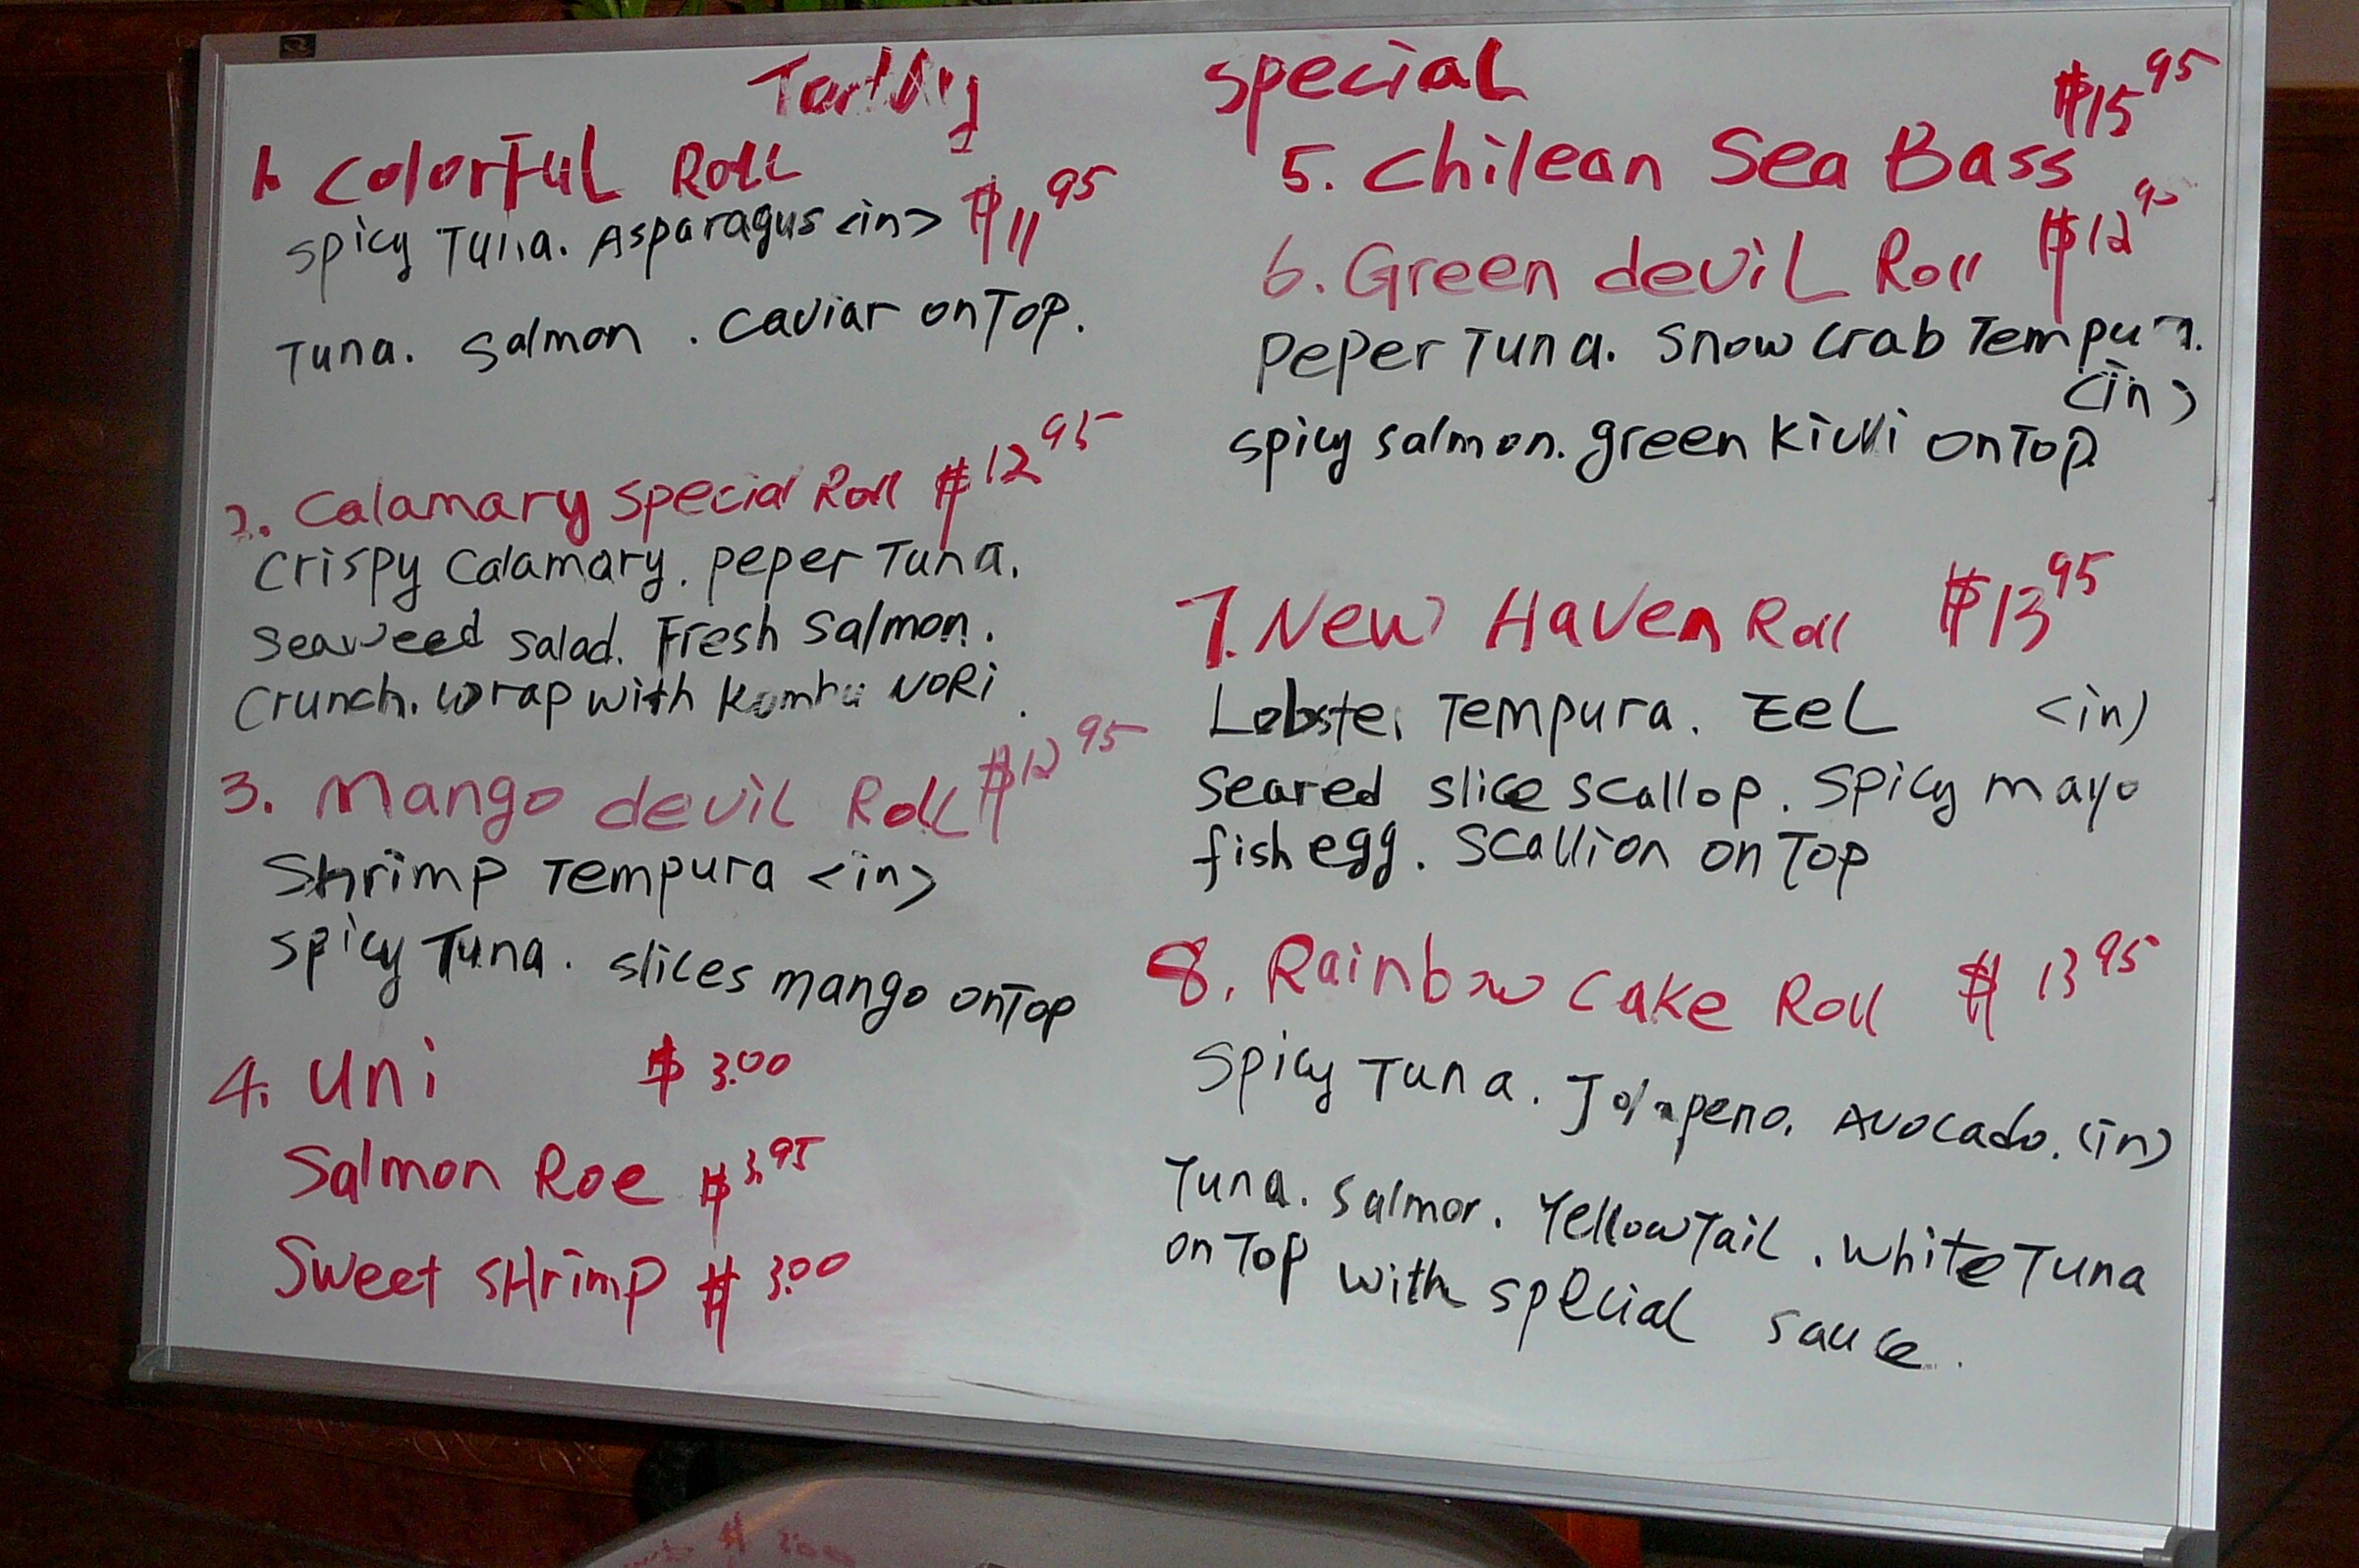 Today Special
1. Colorful Roll
Spicy Tuna. Asparagus <in> $11 95
Tuna. Salmon. Caviar on Top.
2. Calamary Special Roll $12 95
Crispy Calamary. Peper Tuna.
Seaweed Salad. Fresh Salmon.
Crunch. Wrap with Kombu NORi.
3. Mango devil Roll $12 95
Shrimp Tempura <in>
Spicy Tuna. slices mango on Top
4. Uni $3.00
Salmon Roe $3.95
Sweet SHrimp $3.00
5. Chilean Sea Bass $15 95
6. Green devil Roll $12 95
Peper Tuna. Snow Crab Tempura.
<in>
Spicy Salmon. green Kiwi on Top
7. New Haven Roll $13 95
Lobster Tempura. Eel <in)
Seared slice scallop. Spicy mayo
fish egg. Scallion on Top
8. Rainbow Cake Roll $13 95
Spicy Tuna. Jalapeno. Avocado. (in)
Tuna. Salmon. Yellow Tail. White Tuna
on Top with special sauce.